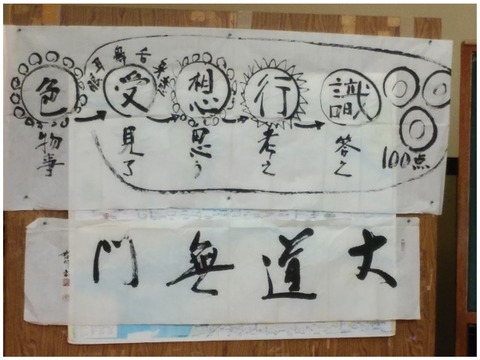 眼耳鼻舌
色 受 想 行 識
物事 見る 思う 考え 答え
100点
大道無門